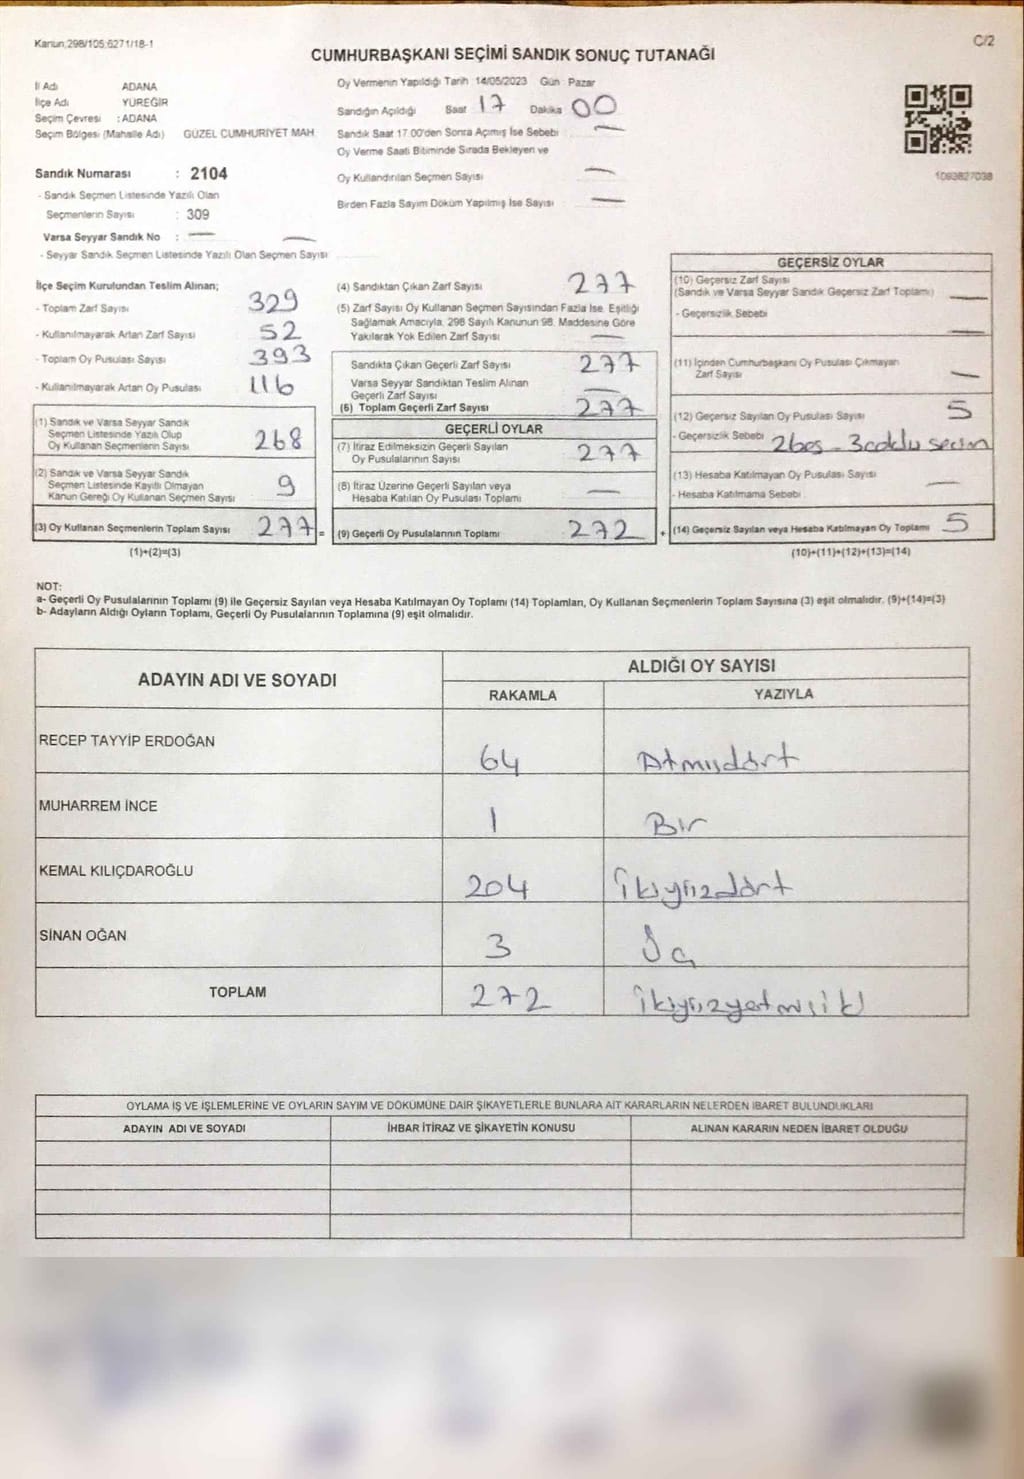 Kanun:298/105;6271/18-1
C/2
CUMHURBAŞKANI SEÇİMİ SANDIK SONUÇ TUTANAĞI
İl Adı ADANA
İlçe Adı YÜREĞİR
Seçim Çevresi : ADANA
Seçim Bölgesi (Mahalle Adı) GÜZEL CUMHURİYET MAH
Sandık Numarası : 2104
- Sandık Seçmen Listesinde Yazılı Olan
Seçmenlerin Sayısı : 309
Varsa Seyyar Sandık No : —
- Seyyar Sandık Seçmen Listesinde Yazılı Olan Seçmen Sayısı —
Oy Vermenin Yapıldığı Tarih 14/05/2023 Gün : Pazar
Sandığın Açıldığı Saat 17 Dakika 00
Sandık Saat 17.00'den Sonra Açılmış İse Sebebi —
Oy Verme Saati Bitiminde Sırada Bekleyen ve
Oy Kullandırılan Seçmen Sayısı —
Birden Fazla Sayım Döküm Yapılmış İse Sayısı —
1093827038
İlçe Seçim Kurulundan Teslim Alınan;
- Toplam Zarf Sayısı 329
- Kullanılmayarak Artan Zarf Sayısı 52
- Toplam Oy Pusulası Sayısı 393
- Kullanılmayarak Artan Oy Pusulası 116
(1) Sandık ve Varsa Seyyar Sandık
Seçmen Listesinde Yazılı Olup
Oy Kullanan Seçmenlerin Sayısı 268
(2) Sandık ve Varsa Seyyar Sandık
Seçmen Listesinde Kayıtlı Olmayan
Kanun Gereği Oy Kullanan Seçmen Sayısı 9
(3) Oy Kullanan Seçmenlerin Toplam Sayısı 277 =
(1)+(2)=(3)
(4) Sandıktan Çıkan Zarf Sayısı 277
(5) Zarf Sayısı Oy Kullanan Seçmen Sayısından Fazla İse, Eşitliği
Sağlamak Amacıyla, 298 Sayılı Kanunun 98. Maddesine Göre
Yakılarak Yok Edilen Zarf Sayısı —
Sandıkta Çıkan Geçerli Zarf Sayısı 277
Varsa Seyyar Sandıktan Teslim Alınan
Geçerli Zarf Sayısı —
(6) Toplam Geçerli Zarf Sayısı 277
GEÇERLİ OYLAR
(7) İtiraz Edilmeksizin Geçerli Sayılan
Oy Pusulalarının Sayısı 277
(8) İtiraz Üzerine Geçerli Sayılan veya
Hesaba Katılan Oy Pusulası Toplamı —
(9) Geçerli Oy Pusulalarının Toplamı 272 +
GEÇERSİZ OYLAR
(10) Geçersiz Zarf Sayısı
(Sandık ve Varsa Seyyar Sandık Geçersiz Zarf Toplamı) —
- Geçersizlik Sebebi —
(11) İçinden Cumhurbaşkanı Oy Pusulası Çıkmayan
Zarf Sayısı —
(12) Geçersiz Sayılan Oy Pusulası Sayısı 5
- Geçersizlik Sebebi 2 boş - 3 çoklu seçim
(13) Hesaba Katılmayan Oy Pusulası Sayısı —
- Hesaba Katılmama Sebebi
(14) Geçersiz Sayılan veya Hesaba Katılmayan Oy Toplamı 5
(10)+(11)+(12)+(13)=(14)
NOT:
a- Geçerli Oy Pusulalarının Toplamı (9) ile Geçersiz Sayılan veya Hesaba Katılmayan Oy Toplamı (14) Toplamları, Oy Kullanan Seçmenlerin Toplam Sayısına (3) eşit olmalıdır. (9)+(14)=(3)
b- Adayların Aldığı Oyların Toplamı, Geçerli Oy Pusulalarının Toplamına (9) eşit olmalıdır.
ADAYIN ADI VE SOYADI
ALDIĞI OY SAYISI
RAKAMLA YAZIYLA
RECEP TAYYİP ERDOĞAN 64 Atmışdört
MUHARREM İNCE 1 Bir
KEMAL KILIÇDAROĞLU 204 İkiyüzdört
SİNAN OĞAN 3 Üç
TOPLAM 272 İkiyüzyetmişiki
OYLAMA İŞ VE İŞLEMLERİNE VE OYLARIN SAYIM VE DÖKÜMÜNE DAİR ŞİKAYETLERLE BUNLARA AİT KARARLARIN NELERDEN İBARET BULUNDUKLARI
ADAYIN ADI VE SOYADI İHBAR İTİRAZ VE ŞİKAYETİN KONUSU ALINAN KARARIN NEDEN İBARET OLDUĞU